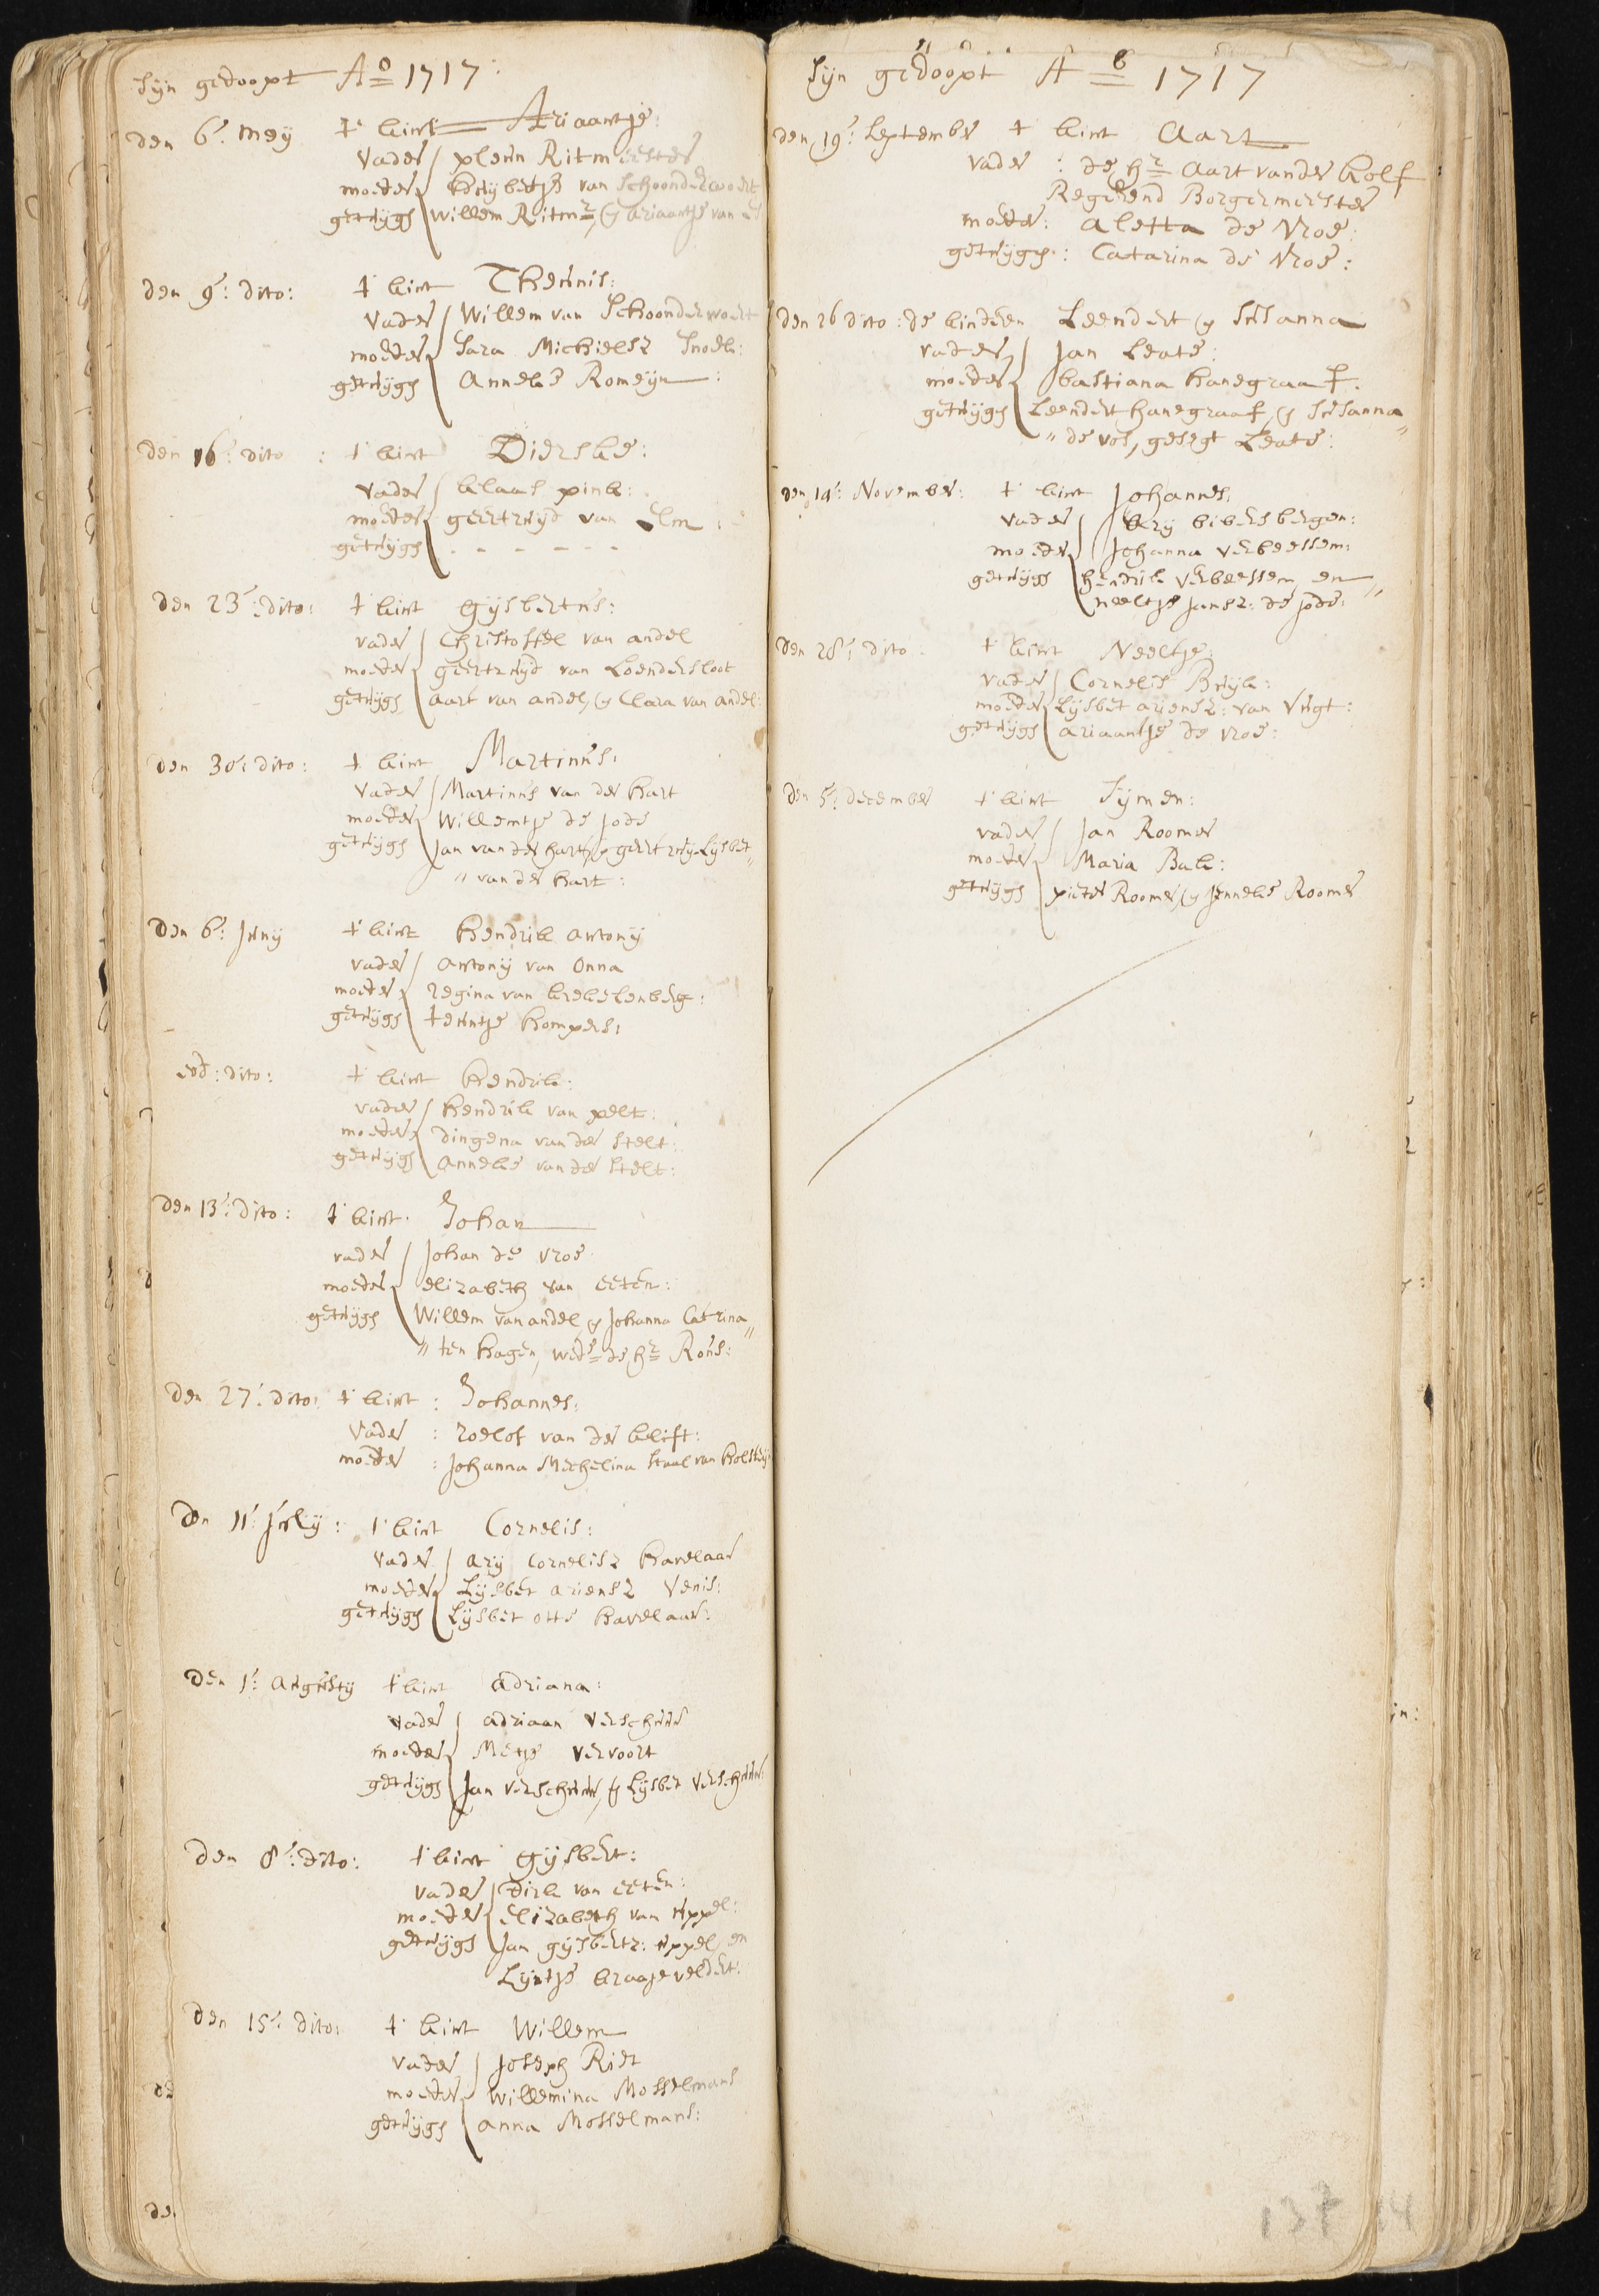 Sijn gedoopt Ao 1717:
den 6: Meij t' kint Ariaantje:
Vader pleun Ritmeester
moeder kruijbetje van Schoonderwoert
getuijge Willem Ritmr, en ariaantje van
den 9: dito: t' kint Theunis:
Vader Willem van Schoonderwoert
moeder Sara Michielsz Snoek:
getuijge Anneke Romeijn:
den 16: dito: t' kint Dierske:
vader klaas pink:
moeder geertruijd van Elm:
getuijge - - - - - -
den 23: dito: t' kint gijsbertus:
vader Christoffel van andel
moeder geertruijd van Loendersloot
getuijge aart van andel, en Clara van andel:
den 30: dito: t' kint Martinus:
Vader Martinus van der hart
moeder Willemtje de jode
getuijge Jan van der hart, en geertruij Lijsbet"
" van der hart:
den 6: Junij t' kint hendrik antonij
vader antonij van Onna
moeder regina van krekelenberg:
getuijge teuntje kompers:
eod: dito: t' kint hendrik:
vader hendrik van pelt:
moeder dingena van der stelt:
getuijge anneke van der stelt:
den 13: dito: t' kint Johan
vader Johan de vroe
moeder elizabeth van eeten:
getuijge Willem van andel en Johanna Catrina"
" ten hagen, wede de hr Rous:
den 27: dito: t' kint: Johannes:
Vader: roelof van der klift:
moeder: Johanna Mechelina Staal van holsteijn
den 11: Julij: t' kint Cornelis:
vader arij Cornelisz havelaar
moeder Lijsbet ariensz Venis:
getuijge Lijsbet otte havelaar:
den 1: augustij t' kint adriana:
vader adriaan verschuur
moeder Metje vervoort
getuijge Jan verschuur, en Lijsbet verschuur:
den 8: dito: t' kint gijsbert:
vader dirk van eeten:
moeder elizabeth van uppel:
getuijge Jan gijsbertz: uppel, en
Lijntje kraajeveldert:
den 15: dito: t' kint Willem
vader Joseph Riet
moeder Willemina Mosselmans
getuijge anna Mosselmans:
Sijn gedoopt Ao 1717
den 19: September t' kint Aart
vader: de hr Aart vander kolf
Regerend Borgermeester
moeder: aletta de Vroe:
getuijge: Catarina de Vroe:
den 26 dito: de kinderen Leendert en Susanna
vader Jan Leate:
moeder bastiana hanegraaf.
getuijge Leendert hanegraaf, en Susanna"
" de vos, gesegt Leate:
den 14: November: t' kint Johannes:
vader kerij bibersbergen:
moeder Johanna verbeessem:
getuijge hendrik verbeessem, en
neeltje jansz: de jode:
den 28: dito t' kint Neeltje:
vader Cornelis Bruijk:
moeder Lijsbet ariensz: van Vugt:
getuijge ariaantje de vroe:
den 5: december t' kint Sijmen:
vader Jan Roomer
moeder Maria Bak:
getuijge pieter Roomer, en Jenneke Roomer